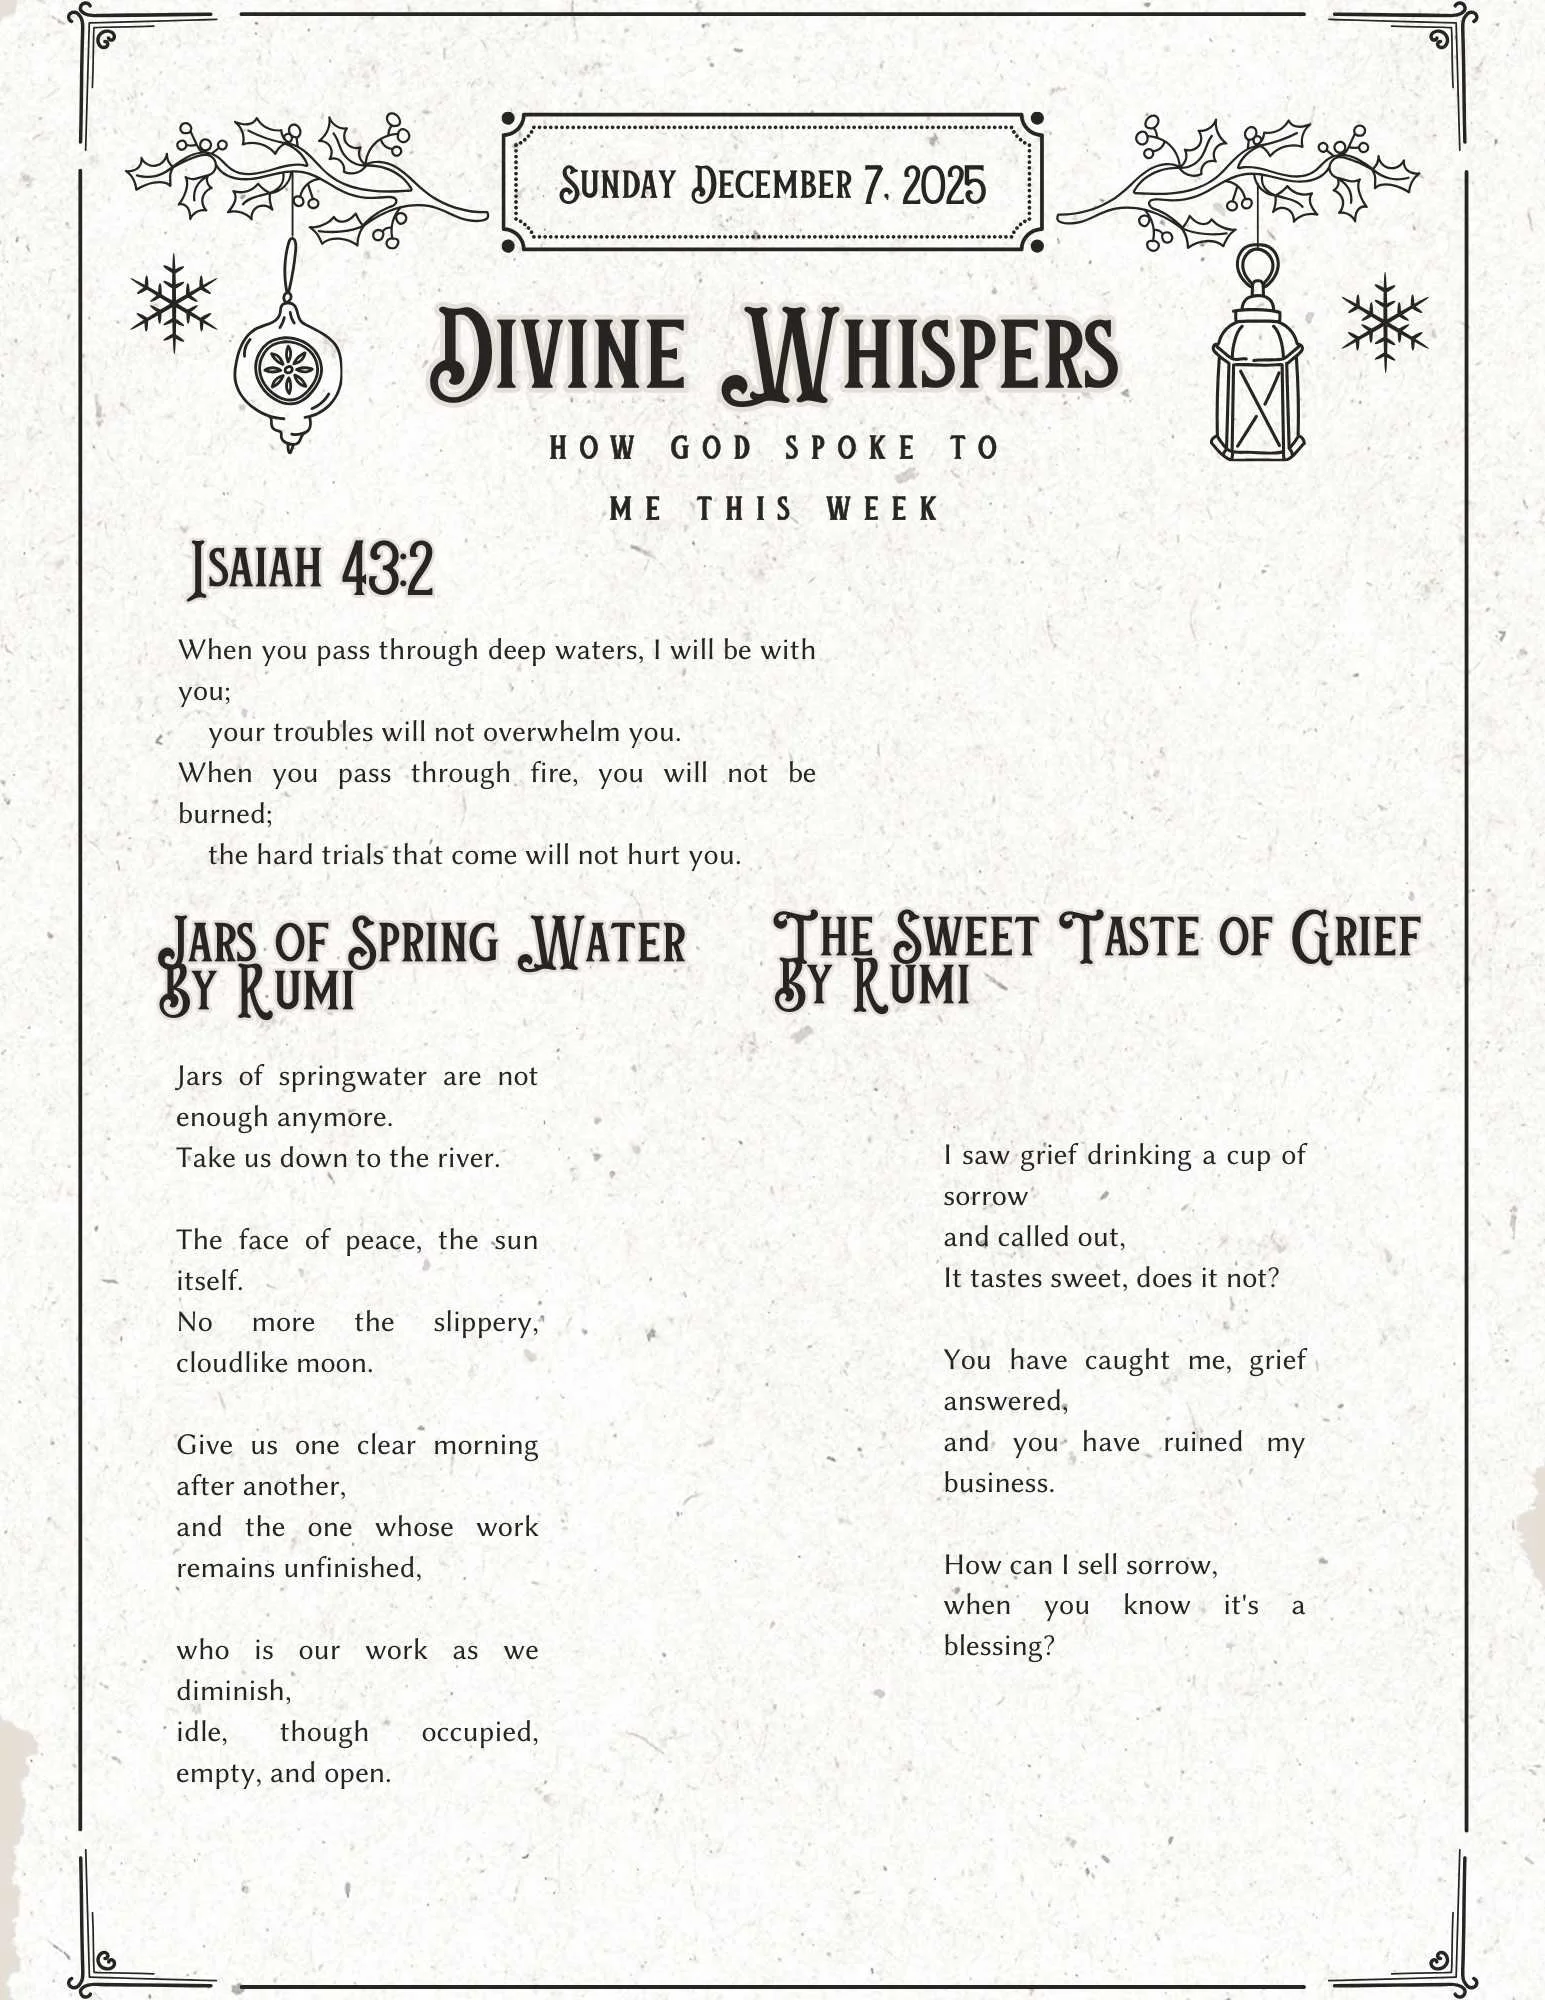 Sunday December 7, 2025
Divine Whispers
HOW GOD SPOKE TO
ME THIS WEEK
Isaiah 43:2
When you pass through deep waters, I will be with
you;
your troubles will not overwhelm you.
When you pass through fire, you will not be
burned;
the hard trials that come will not hurt you.
Jars of Spring Water
By Rumi
Jars of springwater are not
enough anymore.
Take us down to the river.
The face of peace, the sun
itself.
No more the slippery,
cloudlike moon.
Give us one clear morning
after another,
and the one whose work
remains unfinished,
who is our work as we
diminish,
idle, though occupied,
empty, and open.
The Sweet Taste of Grief
By Rumi
I saw grief drinking a cup of
sorrow
and called out,
It tastes sweet, does it not?
You have caught me, grief
answered,
and you have ruined my
business.
How can I sell sorrow,
when you know it's a
blessing?